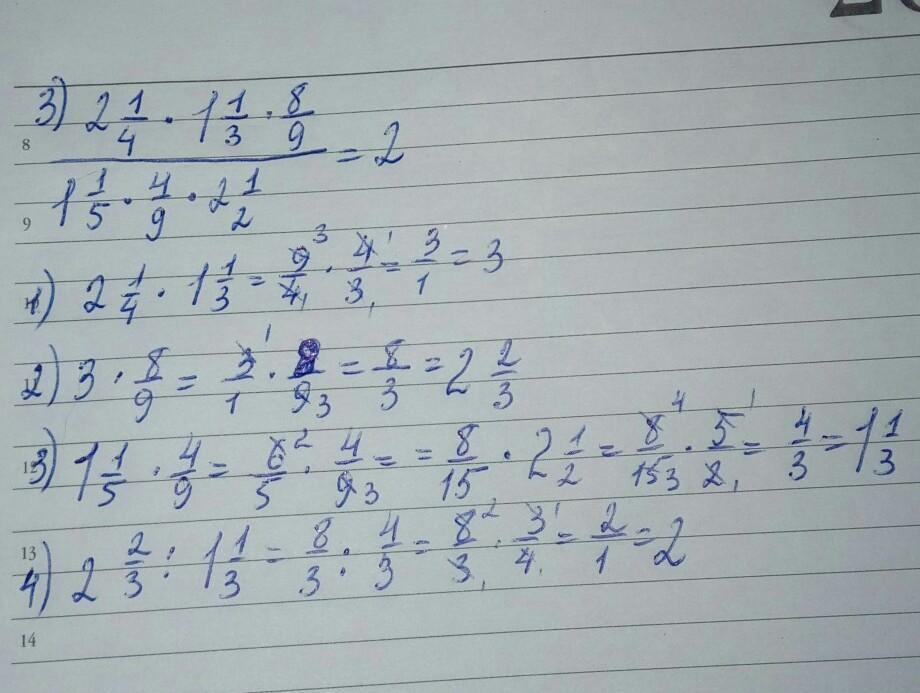 3) 2 1/4 · 1 1/3 · 8/9
8
= 2
1 1/5 · 4/9 · 2 1/2
9
1) 2 1/4 · 1 1/3 = 9/4 · 4/3 = 3/1 = 3
2) 3 · 8/9 = 3/1 · 8/9 = 8/3 = 2 2/3
3) 1 1/5 · 4/9 = 6/5 · 4/9 = = 8/15 · 2 1/2 = 8/15 · 5/2 = 4/3 = 1 1/3
13
4) 2 2/3 : 1 1/3 = 8/3 : 4/3 = 8/3 · 3/4 = 2/1 = 2
14